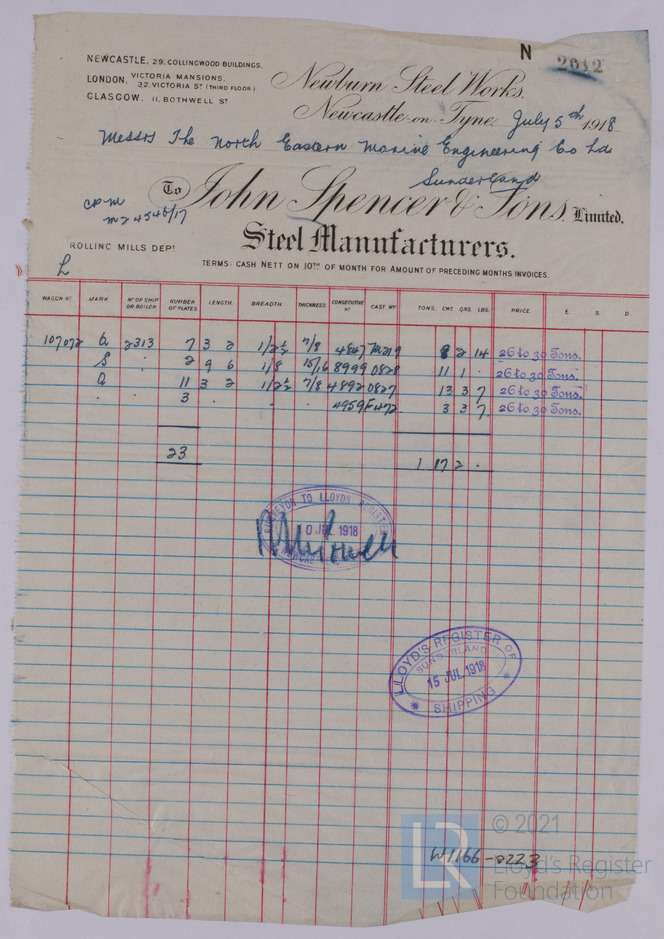 N 2012
NEWCASTLE, 29, COLLINGWOOD BUILDINGS.
LONDON, VICTORIA MANSIONS.
32, VICTORIA ST (THIRD FLOOR)
GLASGOW, 11, BOTHWELL ST
Newburn Steel Works,
Newcastle-on-Tyne, July 5th 1918
Messrs The North Eastern Marine Engineering Co Ld
Sunderland
To John Spencer & Sons, Limited.
Steel Manufacturers.
ROLLING MILLS DEPT
TERMS: CASH NETT ON 10TH OF MONTH FOR AMOUNT OF PRECEDING MONTHS INVOICES.
L
WAGON No MARK No OF SHIP OR BOILER NUMBER OF PLATES LENGTH. BREADTH. THICKNESS. CONSECUTIVE No CAST No TONS. CWT. QRS. LBS. PRICE £. S. D.
107072 a 2313 7 3 2 1/2½ 7/8 4847 8 2 14 26 to 30 Tons.
S " 2 9 6 1/8 15/16 8999 0828 11 1 . 26 to 30 Tons.
a 11 3 2 1/2½ 7/8 4892 0827 13 3 7 26 to 30 Tons.
. . 3 . . . 4959 3 3 7 26 to 30 Tons.
23 1 17 2 .
SURVEYOR TO LLOYDS REGISTER
10 JUL 1918
LLOYD'S REGISTER OF
SUNDERLAND
15 JUL 1918
* SHIPPING *
W1166-0223
LR © 2021
Lloyd's Register
Foundation